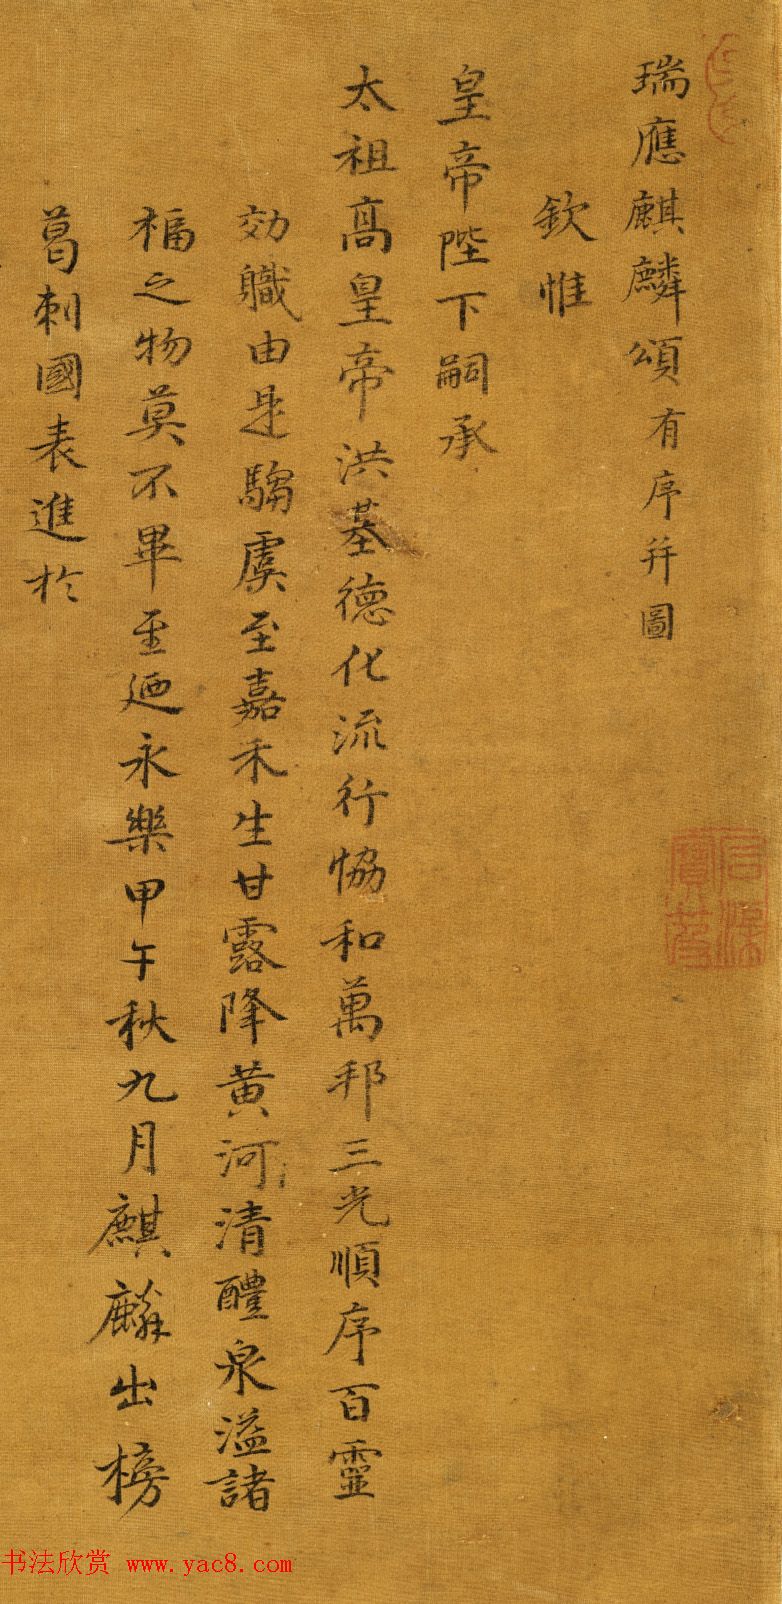 瑞應麒麟頌有序并圖
欽惟
皇帝陛下嗣承
太祖高皇帝洪基德化流行恊和萬邦三光順序百靈
効職由是騶虞至嘉禾生甘露降黄河清醴泉溢諸
福之物莫不畢至廼永樂甲午秋九月麒麟出榜
葛剌國表進於
书法欣赏 www.yac8.com